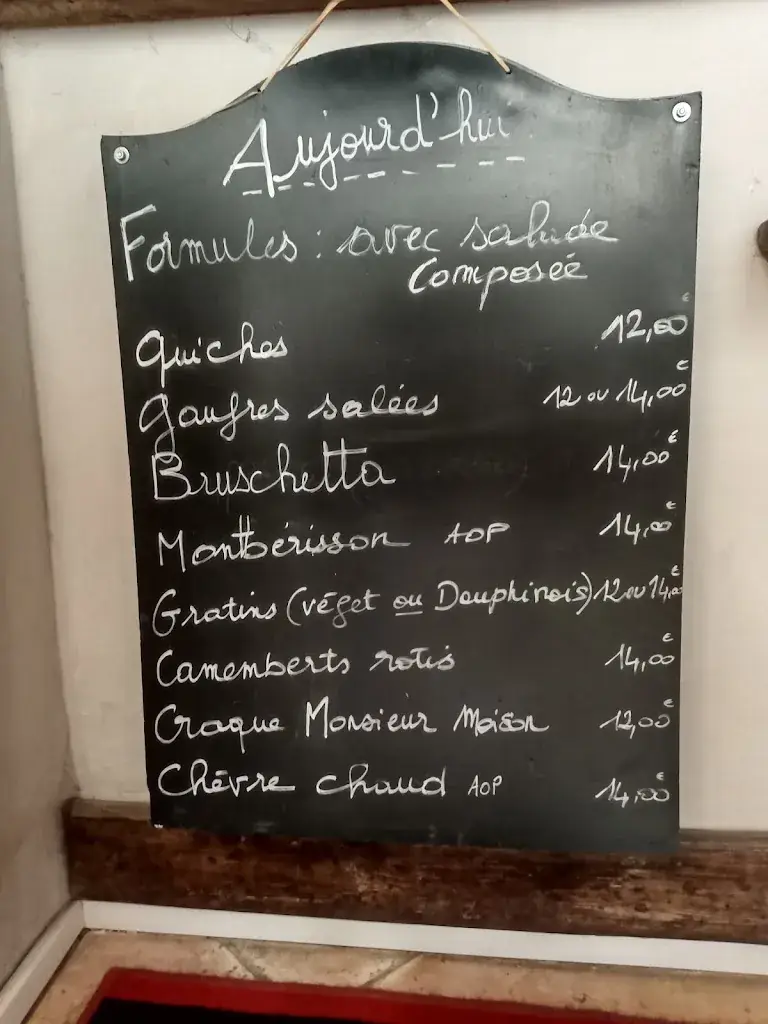 Aujourd'hui
Formules : avec salade
Composée
quiches 12,00€
gaufres salées 12 ou 14,00€
Bruschetta 14,00€
Montbérisson AOP 14,00€
Gratins (véget ou Dauphinois) 12 ou 14,00€
Camemberts rotis 14,00€
Croque Monsieur Maison 12,00€
Chèvre chaud AOP 14,00€